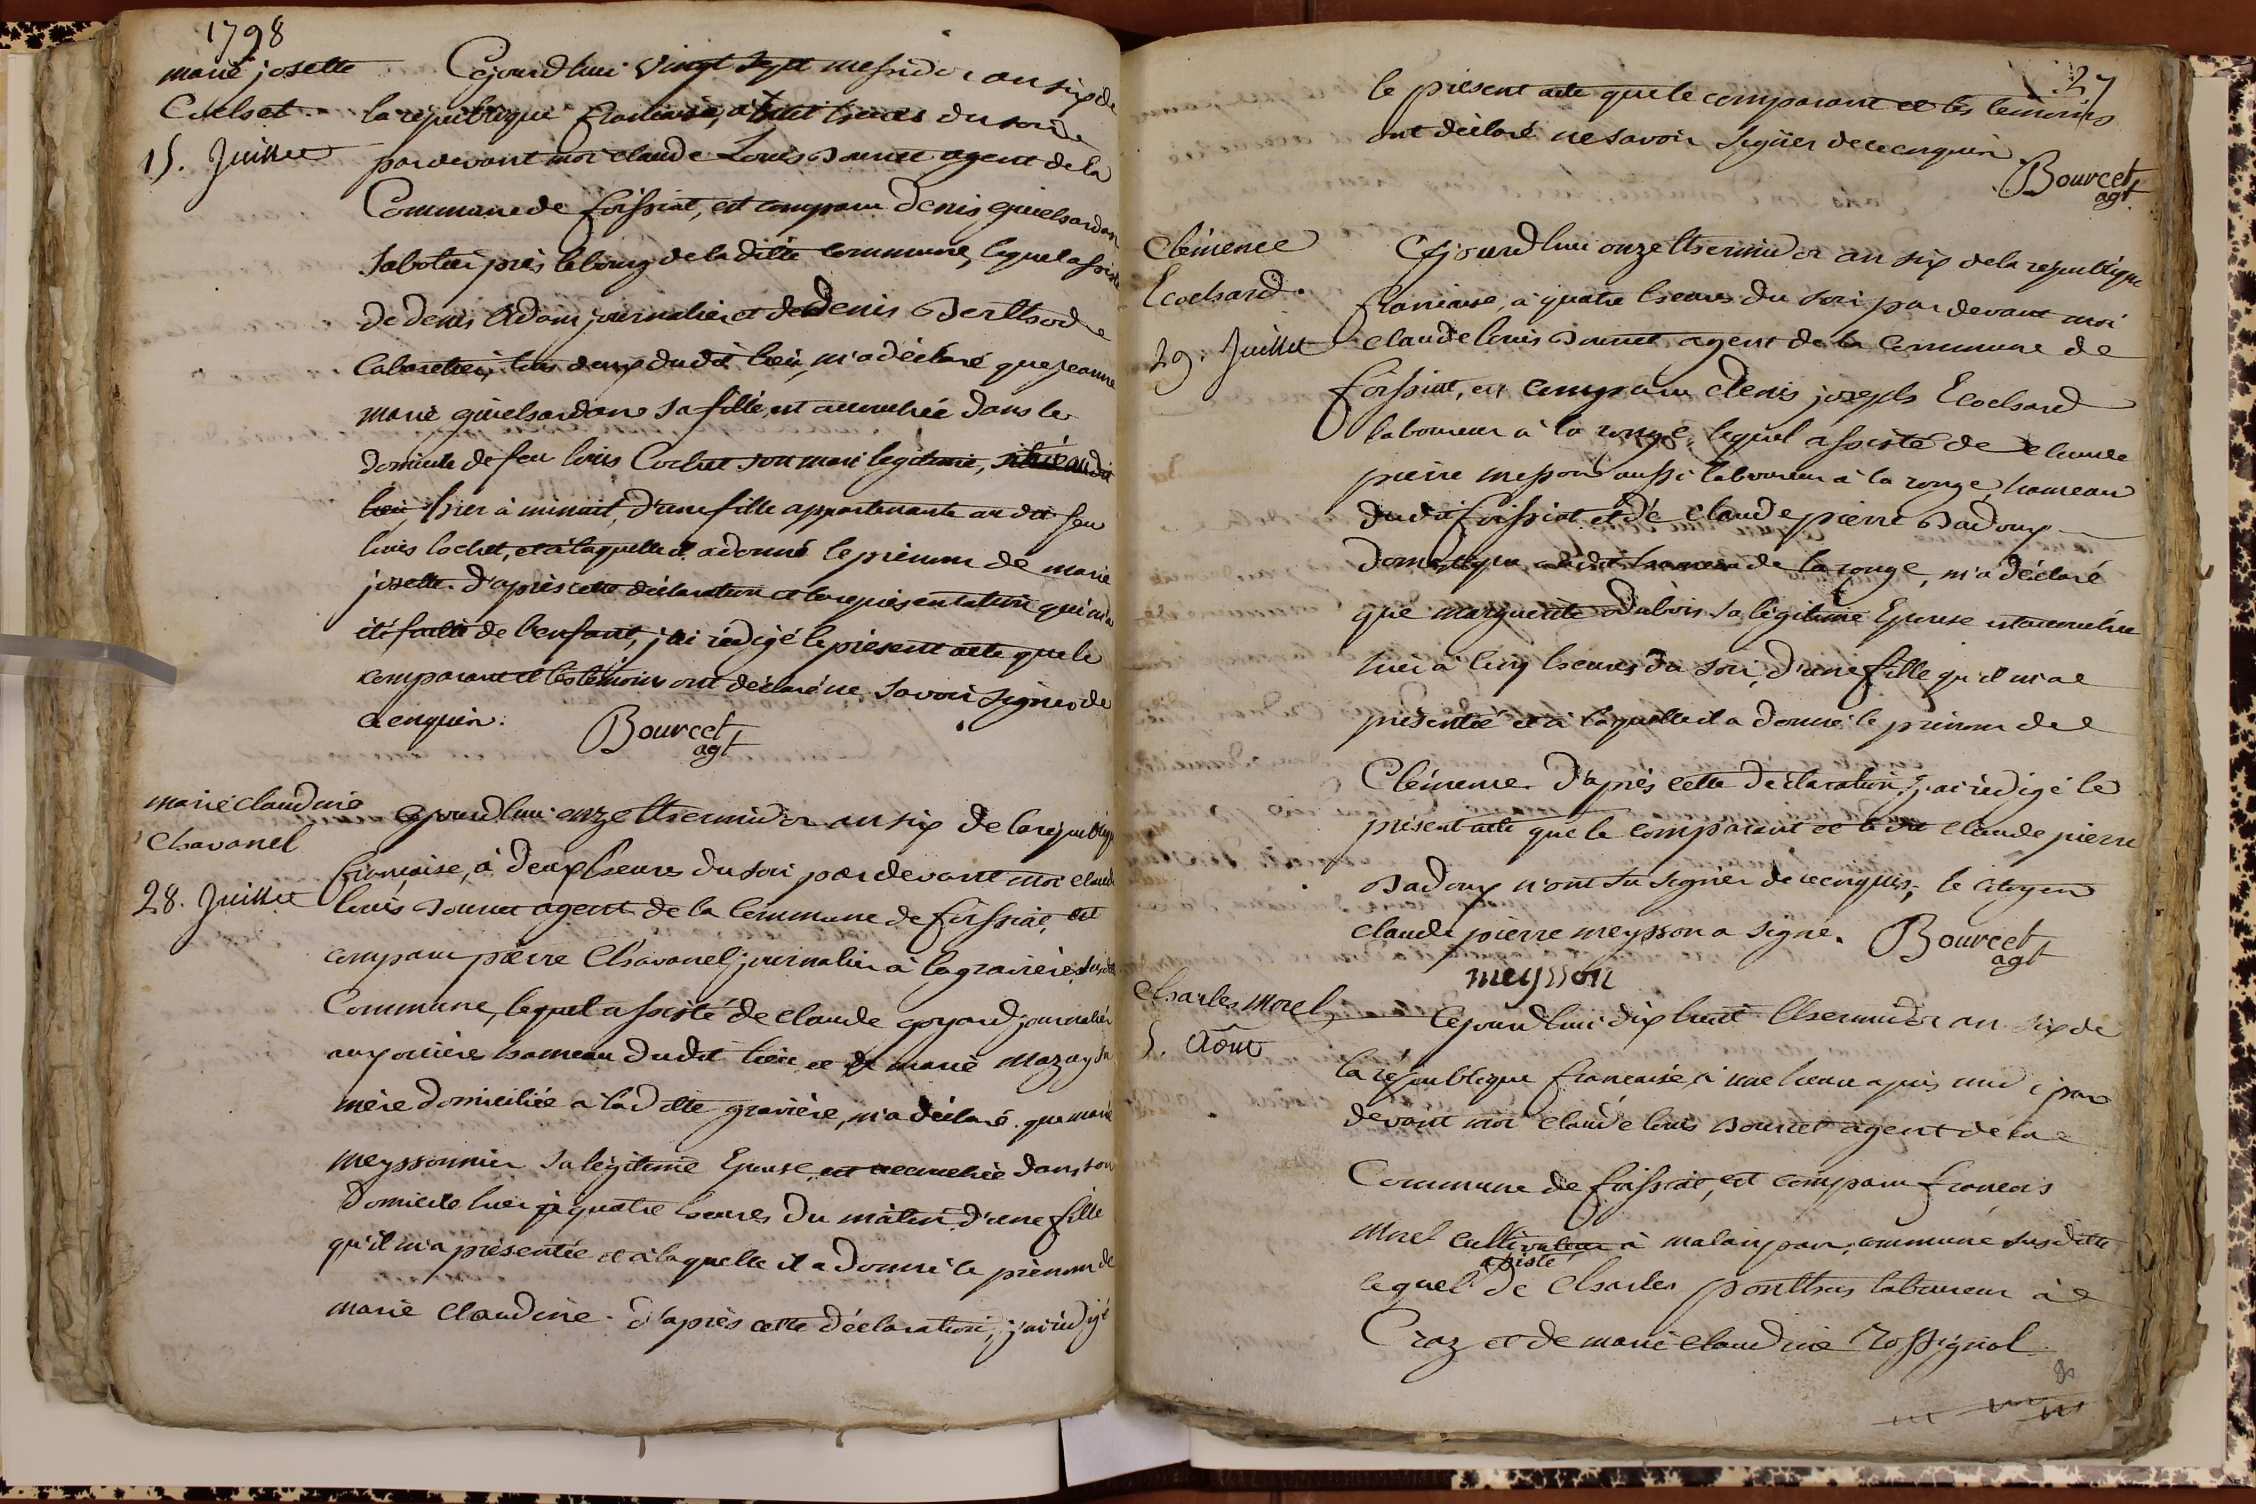 1798
marie josette
Cochet
15. Juillet
Cejourd'hui vingt sept messidor an six de
la république francaise, à huit heures du soir
pardevant moi claude Louis Bourcet agent de la
Commune de foissiat, est comparu denis guichardan
Sabotier près le bourg de la ditte commune, lequel assisté
de denis Adam journalier et de denis Berthod
Cabaretier, tous deux du dit lieu, m'a déclaré que jeanne
marie guichardan sa fille, est accouchée dans le
domicile de feu louis Cochet son mari legitime, situé audit
lieu, hier à minuit, d'une fille appartenante au dit feu
louis Cochet, et à laquelle il a donné le prénom de marie
josette. d'après cette déclaration et la représentation qui m'a
été faitte de l'enfant, j'ai rédigé le présent acte que le
comparant et les témoins ont déclaré ne savoir signer de
ce enquis.
Bourcet
agt
marie claudine
Chavanel
28. Juillet
Cejourd'hui onze thermidor an six de la républiq
francaise, à deux heures du soir pardevant moi claude
louis Bourcet agent de la Commune de foissiat, est
comparu pierre Chavanel journalier à la gravière, susditte
Commune, lequel assisté de claude goyard journalier
aux hameau dudit lieu et de marie mazuy sa
mère domiciliée à la ditte gravière, m'a déclaré que marie
meyssonnier sa légitime Epouse est accouchée dans son
domicile hier à quatre heures du matin d'une fille
qu'il m'a présentée et à laquelle il a donné le prénom de
marie claudine. d'après cette déclaration, j'ai rédigé
27
le présent acte que le comparant et les témoins
ont déclaré ne savoir signer de ce enquis.
Bourcet
agt.
Clémence
Ecochard.
29. Juillet
Cejourd'hui onze thermidor an six de la république
francaise, à quatre heures du soir pardevant moi
claude louis Bourcet agent de la Commune de
foissiat, est comparu denis joseph Ecochard
laboureur à la ronge, lequel assisté de claude
pierre messon aussi laboureur à la ronge, hameau
du dit foissiat et de claude pierre Badoux
domestique au dit hameau de la ronge, m'a déclaré
que marguerite Dubois sa légitime Epouse est accouchée
hier à cinq heures du soir, d'une fille qu'il m'a
présentée et à laquelle il a donné le prénom de
Clémence. d'après cette déclaration, j'ai rédigé le
présent acte que le comparant et le dit claude pierre
Badoux n'ont su signer de ce enquis; le citoyen
claude pierre meysson a signé.
Bourcet
agt
meysson
Charles Morel
5. Août
Cejourd'hui dix huit thermidor an six de
la république francaise à une heure après midi par
devant moi claude louis Bourcet agent de la
Commune de foissiat, est comparu francois
Morel cultivateur à commune susditte
assisté
lequel de Charles ponthus laboureur à
Craz et de marie claudine rossignol